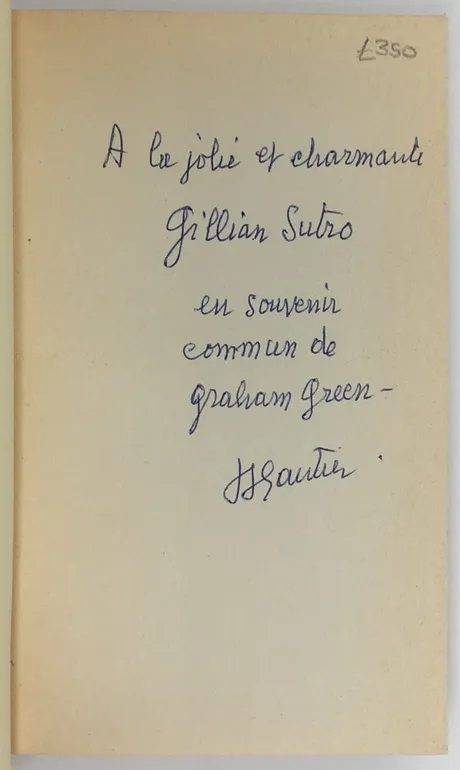 £350
A la jolie et charmante
Gillian Sutro
en souvenir
commun de
Graham Green -
JJGautier.